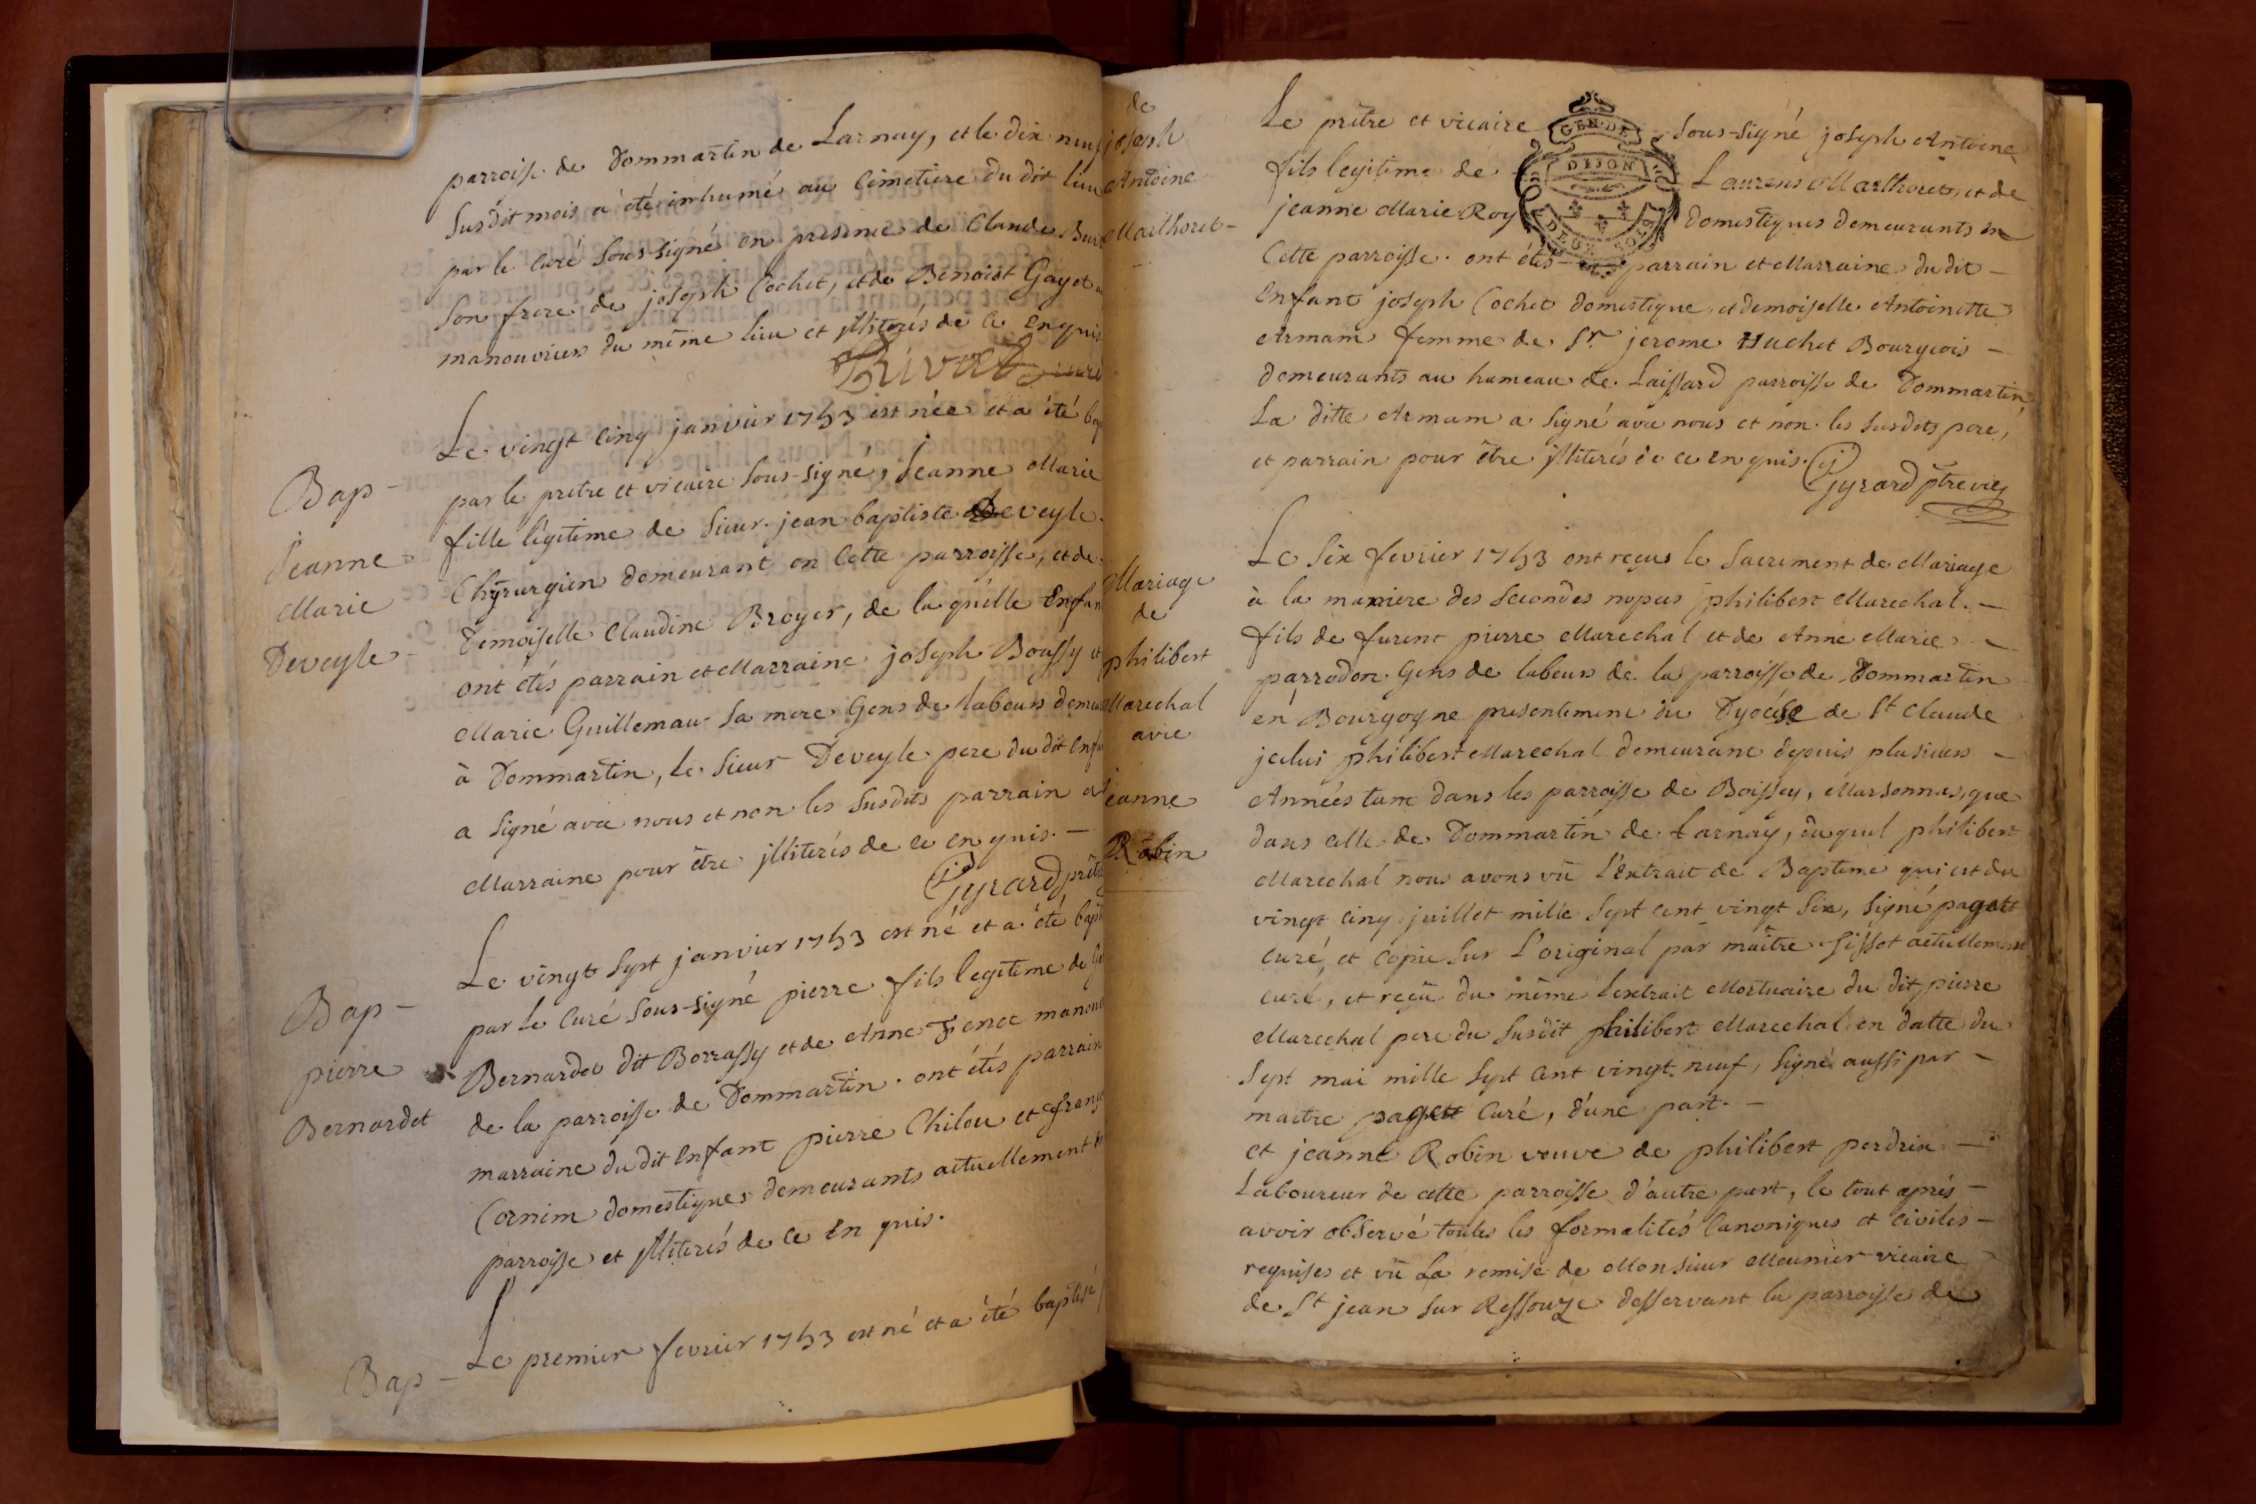 parroisse de Dommartin de Larnay, et le dix neuf
susdit mois a été inhumé au Cimetiere du dit lieu
par le Curé sous-signé en presence de Claude
son frere de joseph Cochet, et de Benoist Gayet
manouvriers du même lieu et illiterés de ce enquis
Bap -
jeanne
Marie
Deveyle -
Le vingt cinq janvier 1753 est née et a été bap
par le pretre et vicaire sous-signé, Jeanne Marie
fille légitime de sieur jean baptiste Deveyle
Chyrurgien demeurant en Cette parroisse, et de
Demoiselle Claudine Broyer, de la quelle Enfan
ont étés parrain et Marraine joseph Boussy et
Marie Guillemau sa mere Gens de labeurs demeu
à Dommartin, le sieur Deveyle pere du dit enfa
a signé avec nous et non les susdits parrain et
Marraine pour être illiterés de ce en quis. -
Gyrard prêtre
Bap -
pierre
Bernardet
Le vingt sept janvier 1753 est né et a été bapt
par le Curé sous-signé pierre fils legitime de
Bernardet dit Borrassy et de Anne manou
de la parroisse de Dommartin. ont étés parrain
marraine du dit enfant pierre Chilou et
Cornim domestiques demeurants actuellement
parroisse et illiterés de ce en quis.
Bap -
Le premier fevrier 1753 est né et a été baptisé
de
joseph
Antoine
Mailhoret -
Le prêtre et vicaire sous-signé joseph Antoine
GEN. DE
DIJON
DEUX SOLS
fils legitime de Laurens Mailhoret, et de
jeanne Marie Roy domestiques demeurants en
Cette parroisse. ont étés parrain et Marraine du dit -
Enfant joseph Cochet domestique, et demoiselle Antoinette
Armam femme de Sr jerome Huchet Bourgeois -
demeurants au hameau de Laissard parroisse de Dommartin,
La ditte Armam a signé avec nous et non les susdits pere,
et parrain pour être illiterés de ce en quis.
Gyrard ptre vic
Mariage
de
philibert
Marechal
avec
jeanne
Robin
Le six fevrier 1753 ont reçus le sacrement de Mariage
à la maniere des secondes nopces philibert Marechal. -
fils de furent pierre Marechal et de Anne Marie -
parrodon Gens de labeurs de la parroisse de Dommartin
en Bourgogne presentement du Dyocése de St Claude
jcelui philibert Marechal demeurant depuis plusieurs -
Années tant dans les parroisse de Boissey, Marsonnas, que
dans celle de Dommartin de Larnay, du quel philibert
Marechal nous avons vû l'Extrait de Bapteme qui est du
vingt cinq juillet mille sept cent vingt six, signé pagett
curé, et copie sur l'original par maître Sissot actuellement
curé, et reçû du même lextrait Mortuaire du dit pierre
Marechal pere du susdit philibert Marechal en datte du
sept mai mille sept cent vingt neuf, signé aussi par -
maitre pagett Curé, d'une part. -
et jeanne Robin veuve de philibert perdrix -
Laboureur de cette parroisse d'autre part, le tout aprés -
avoir observé toutes les formalités Canoniques et Civiles -
requises et vû La remise de Monsieur Meunier vicaire
de St jean sur Ressouze desservant la parroisse de